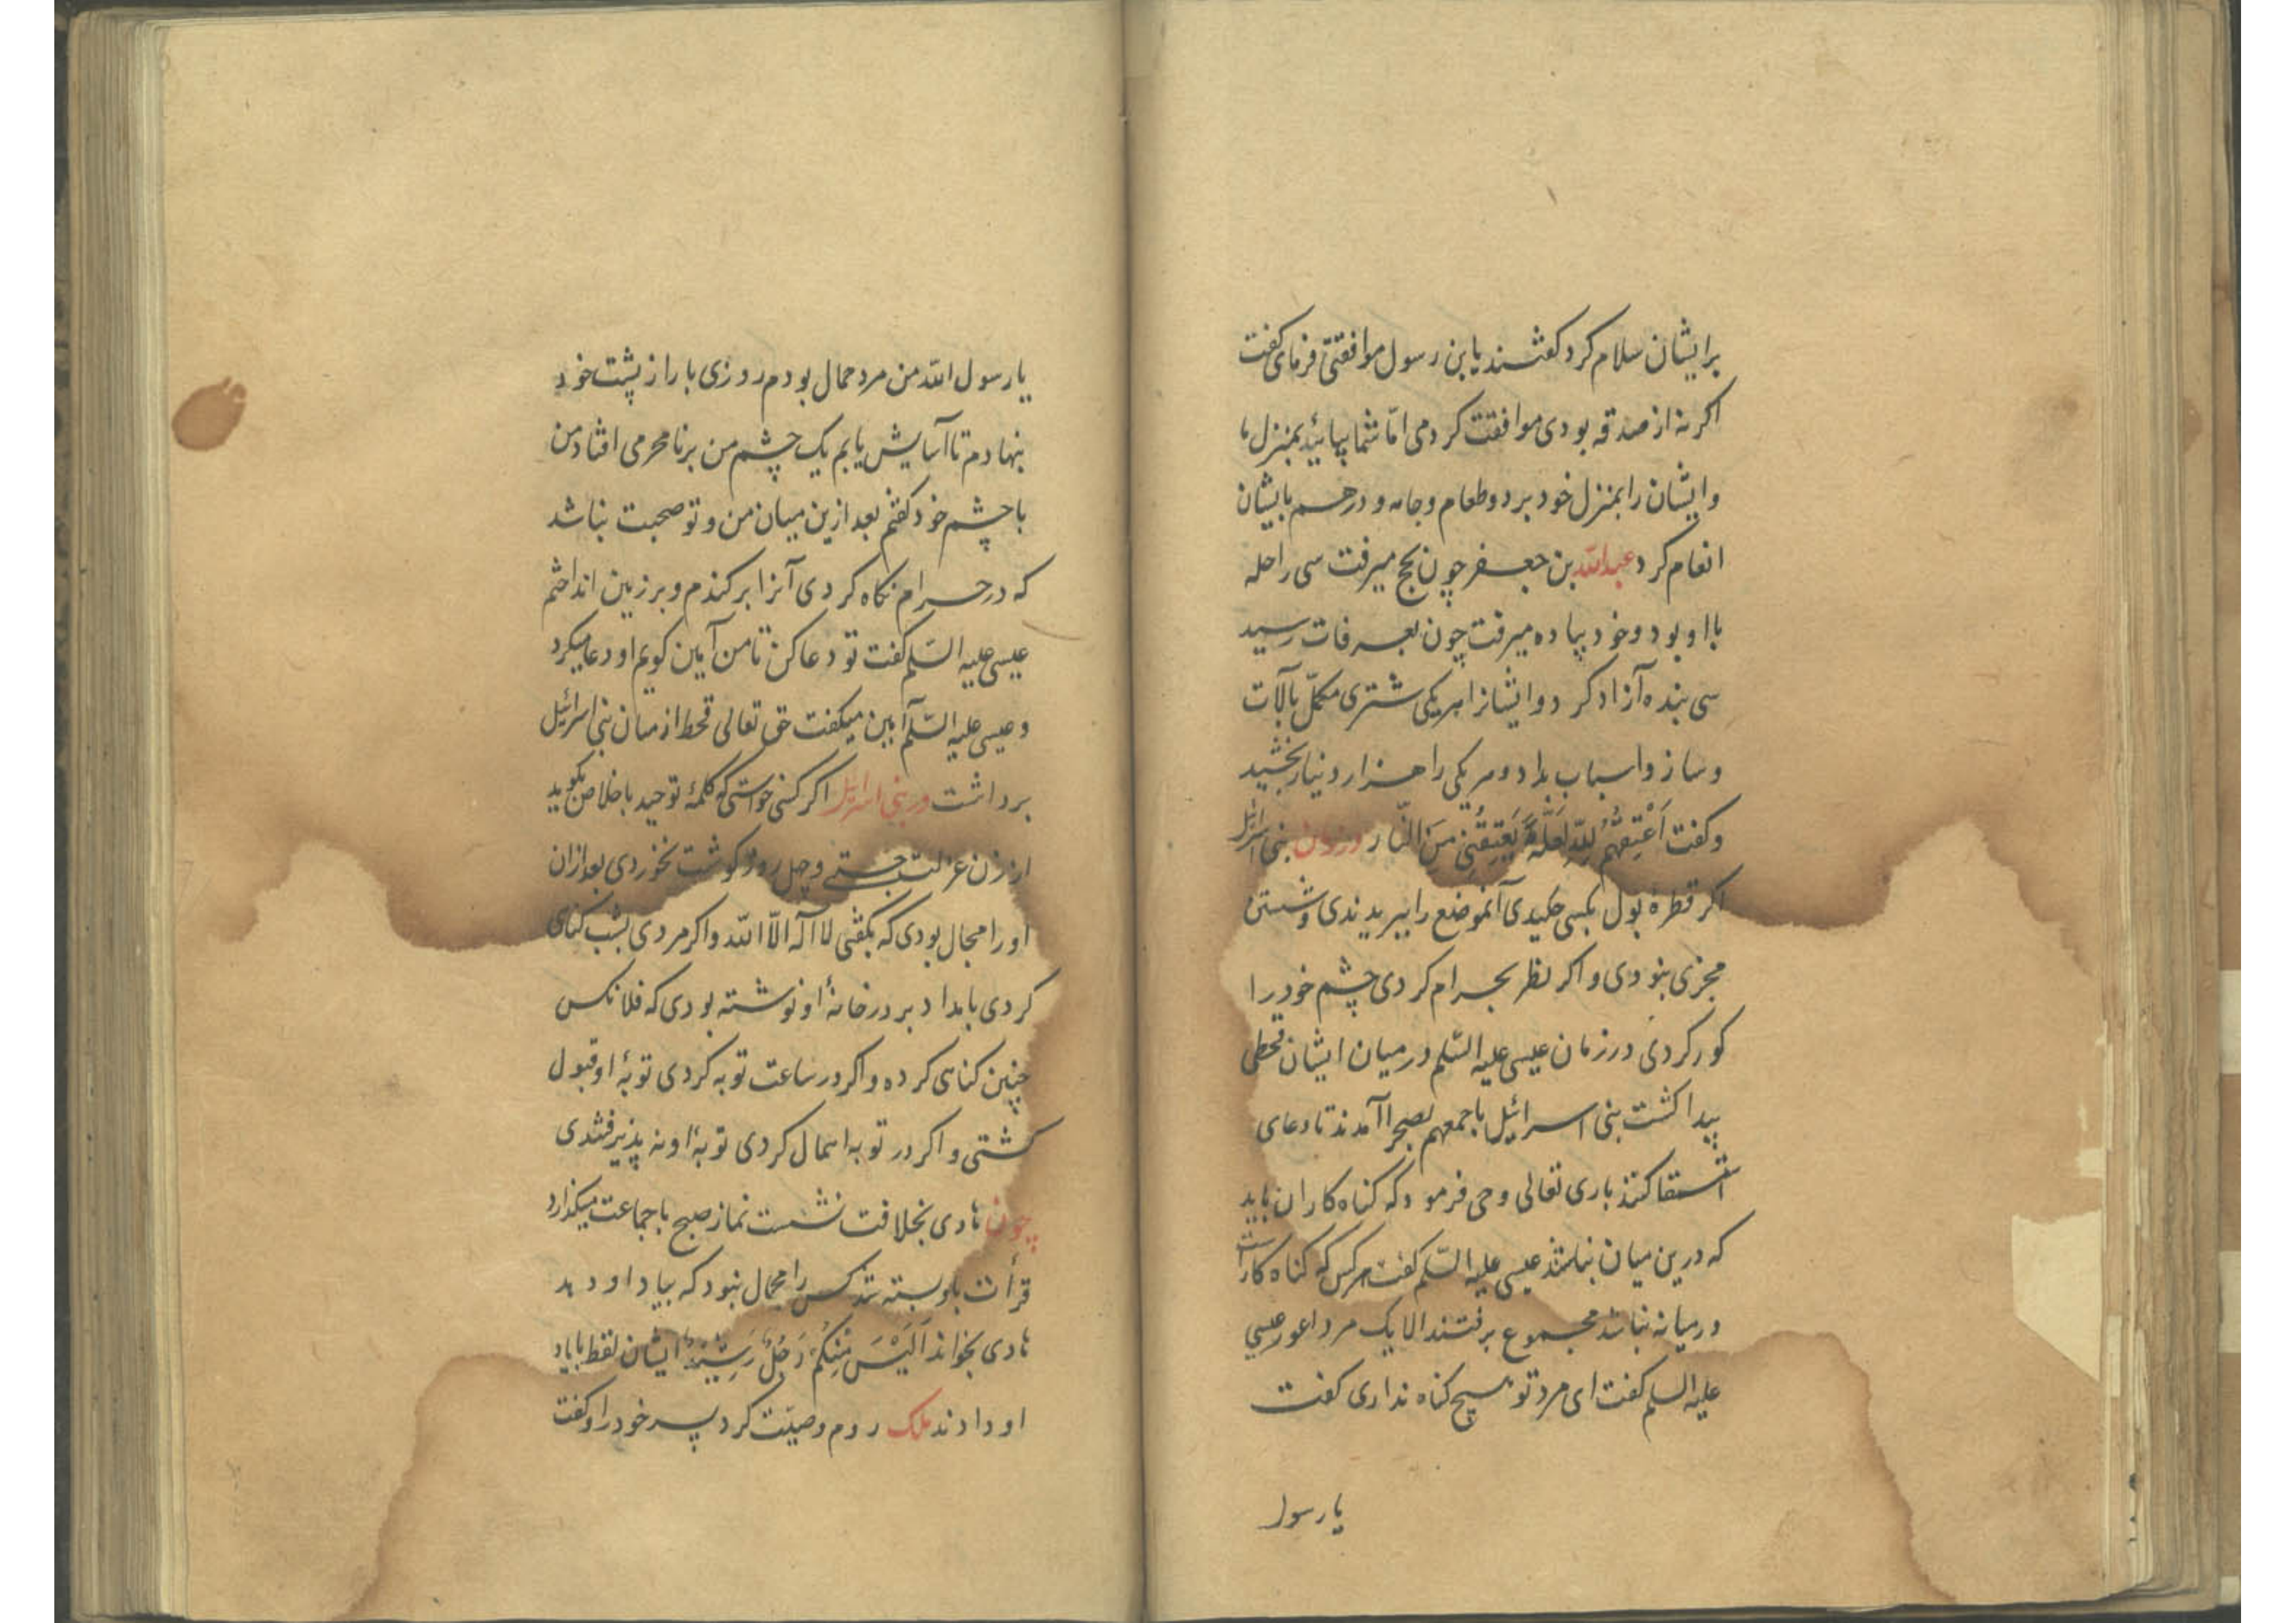 برایشان سلام کرد کفتند یابن رسول موافقتی فرمای کفت
اکر نه از صدقه بودی موافقت کردمی امّا شما بیائید بمنزل ما
و ایشان را بمنزل خود برد و طعام و جامه و درهم بایشان
انعام کرد عبدالله بن جعفر چون بحج میرفت سی راحله
با او بود و خود پیاده میرفت چون بعرفات رسید
سی بنده آزاد کرد و ایشانرا هریکی شتری مکمّل بآلات
و ساز و اسباب بداد و هریکی را هزار دینار بخشید
و کفت اَعْتِقُهُمْ لِلّهِ لَعَلَّهُ یَعْتِقُنِی مِنَ النّار در زمان بنی اسرائیل
اکر قطرهٔ بول بکسی چکیدی آنموضع را ببریدندی و شستن
مجزی نبودی و اکر نظر بحرام کردی چشم خود را
کور کردی در زمان عیسی علیه السّلم در میان ایشان قحطی
پیدا کشت بنی اسرائیل باجمعهم بصحرا آمدند تا دعای
استسقا کنند باری تعالی وحی فرمود که کناه کاران باید
که درین میان نباشند عیسی علیه السّلم کفت هرکس که کناه کار است
در میانه نباشد مجموع برفتند الا یک مرد اعور عیسی
علیه السلم کفت ای مرد تو هیچ کناه نداری کفت
یا رسول
یا رسول الله من مرد حمال بودم روزی بار از پشت خود
بنهادم تا آسایش یابم یک چشم من برنامحرمی افتاد من
با چشم خود کفتم بعد ازین میان من و تو صحبت نباشد
که در حرام نکاه کردی آنرا برکندم و بر زمین انداختم
عیسی علیه السّلم کفت تو دعا کن تا من آمین کویم او دعا میکرد
و عیسی علیه السّلم آمین میکفت حق تعالی قحط از میان بنی اسرائیل
برداشت در بنی اسرائیل اکر کسی خواستی که کلمهٔ توحید باخلاص بکوید
از زن عزلت جستی و چهل روز کوشت نخوردی بعد ازان
او را مجال بودی که بکفتی لا اله الّا الله و اکر مردی بشب کناهی
کردی بامداد بر در خانهٔ او نوشته بودی که فلانکس
چنین کناهی کرده و اکر در ساعت توبه کردی توبهٔ او قبول
کشتی و اکر در توبه اهمال کردی توبهٔ او نه پذیرفتندی
چون هادی بخلافت نشست نماز صبح باجماعت میکذارد
قرأت باو بسته شد کس را مجال نبود که بیاد او دهد
هادی بخواند اَلَیْسَ مِنْکُمْ رَجُلٌ رَشِیْدٌ ایشان لفظ بایاد
او دادند ملک روم وصیّت کرد پسر خود را و کفت